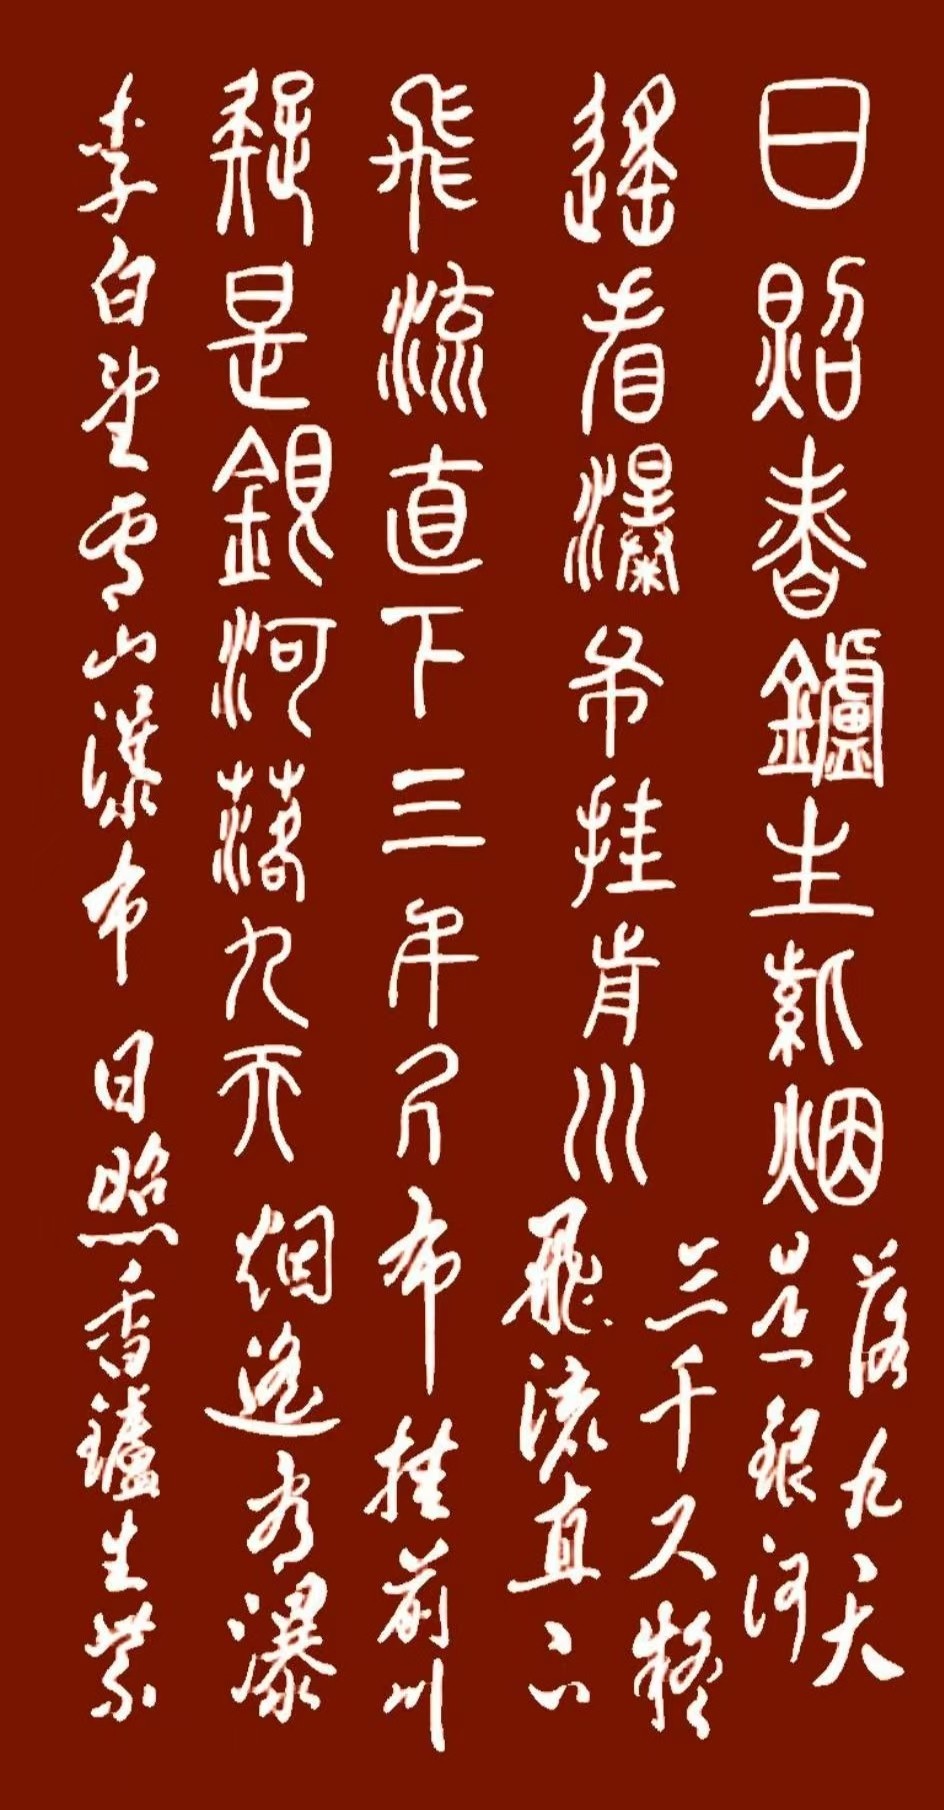 日照香鑪生紫烟
遙看瀑布挂前川
飛流直下三千尺
疑是銀河落九天
李白望庐山瀑布 日照香鑪生紫
烟遙看瀑
布挂前川
飛流直下
三千尺疑
是銀河
落九天